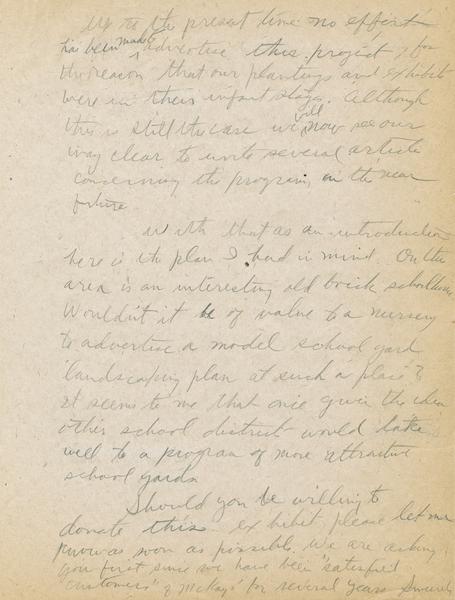 Up to the present time no effort
has been made to advertise this project, for
the reason that our plantings and exhibits
were in their infant stages. Although
this is still the case we will now see our
way clear to write several article
concerning the program in the near
future.
With that as an introduction
here is the plan I had in mind. On the
area is an interesting old brick schoolhouse.
Wouldn't it be of value to a nursery
to advertise a model school yard
landscaping plan at such a place?
It seems to me that once given the idea
other school district would take
well to a program of more attractive
school yards
Should you be willing to
donate this exhibit, please let me
know as soon as possible. We are asking
you first since we have been "satisfied
customers" of McKay's for several years Sincerely